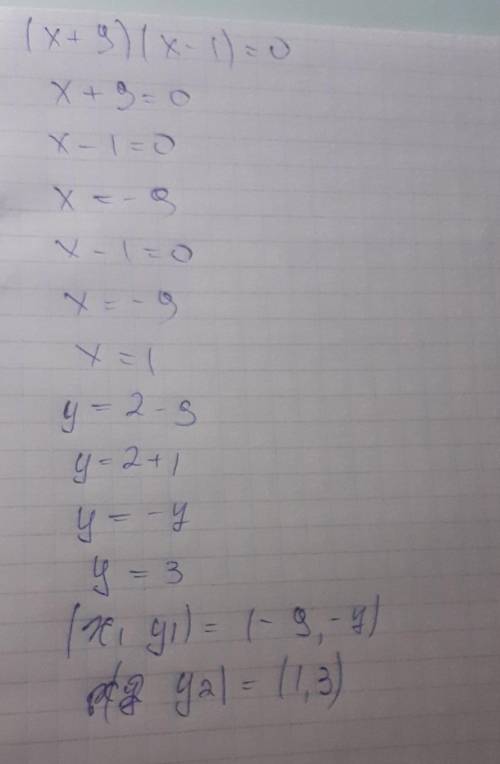 (x+9)(x-1)=0
x+9=0
x-1=0
x=-9
x-1=0
x=-9
x=1
y=2-9
y=2+1
y=-7
y=3
(x1 y1)=(-9,-7)
y2)=(1,3)